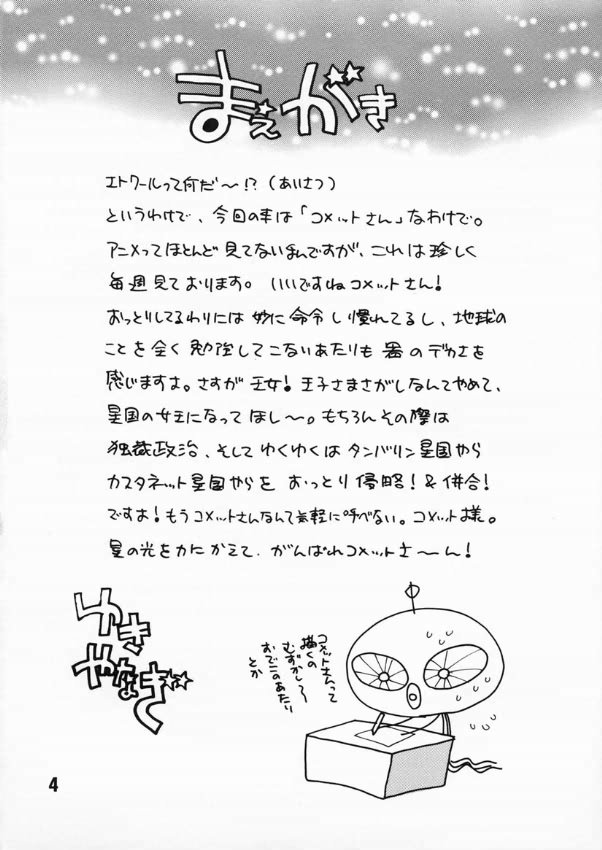 まえがき
エトワールって何だ〜!?（あいさつ）
というわけで、今回の本は「コメットさん」なわけで。
アニメってほとんど見てないんですが、これは珍しく
毎週見ております。いいですねコメットさん!
おっとりしてるわりには妙に命令し慣れてるし、地球の
ことを全く勉強してこないあたりも器のデカさを
感じますよ。さすが王女!王子さまさがしなんてやめて、
星国の女王になってほし〜。もちろんその際は
独裁政治、そしてゆくゆくはタンバリン星国やら
カスタネット星国やらをおっとり侵略!&併合!
ですよ!もうコメットさんなんて気軽に呼べない。コメット様。
星の光を力にかえて、がんばれコメットさ〜ん!
コメットさんって
描くの
むずかし〜
おでこのあたり
とか
ゆき
やなぎ
4